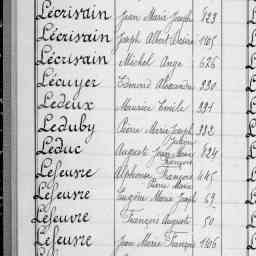 Lécrivain Jean Marie Joseph 423
Lécrivain Joseph Albert Désiré 1165
Lécrivain Michel Ange 626
Lécuyer Edmond Alexandre 930
Ledeux Maurice Emile 991
Leduby Pierre Marie Joseph 382
Julien
Leduc Auguste Jean Marie 424
François
Lefeuvre Alphonse François 445
Pierre Marie
Lefeuvre Eugène Marie Joseph 69
Lefeuvre François Auguste 50
Lefeuvre Jean Marie François 1106